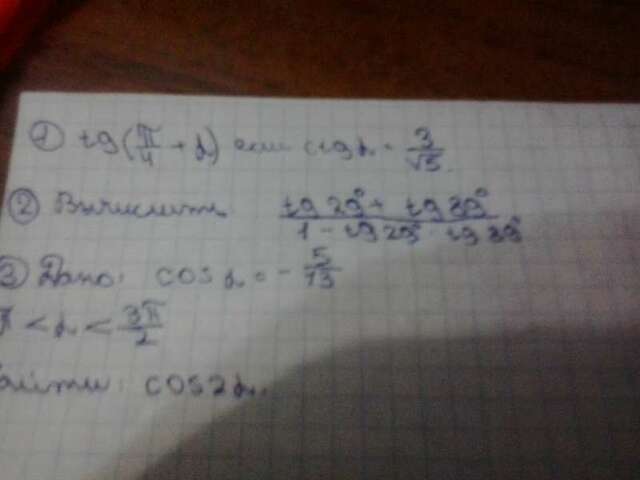 ① tg(π/4 + α) если ctg α = 3/√5.
② Вычислить (tg 29° + tg 89°)/(1 - tg 29° · tg 89°)
③ Дано: cos α = -5/13
π < α < 3π/2
айти: cos2α.